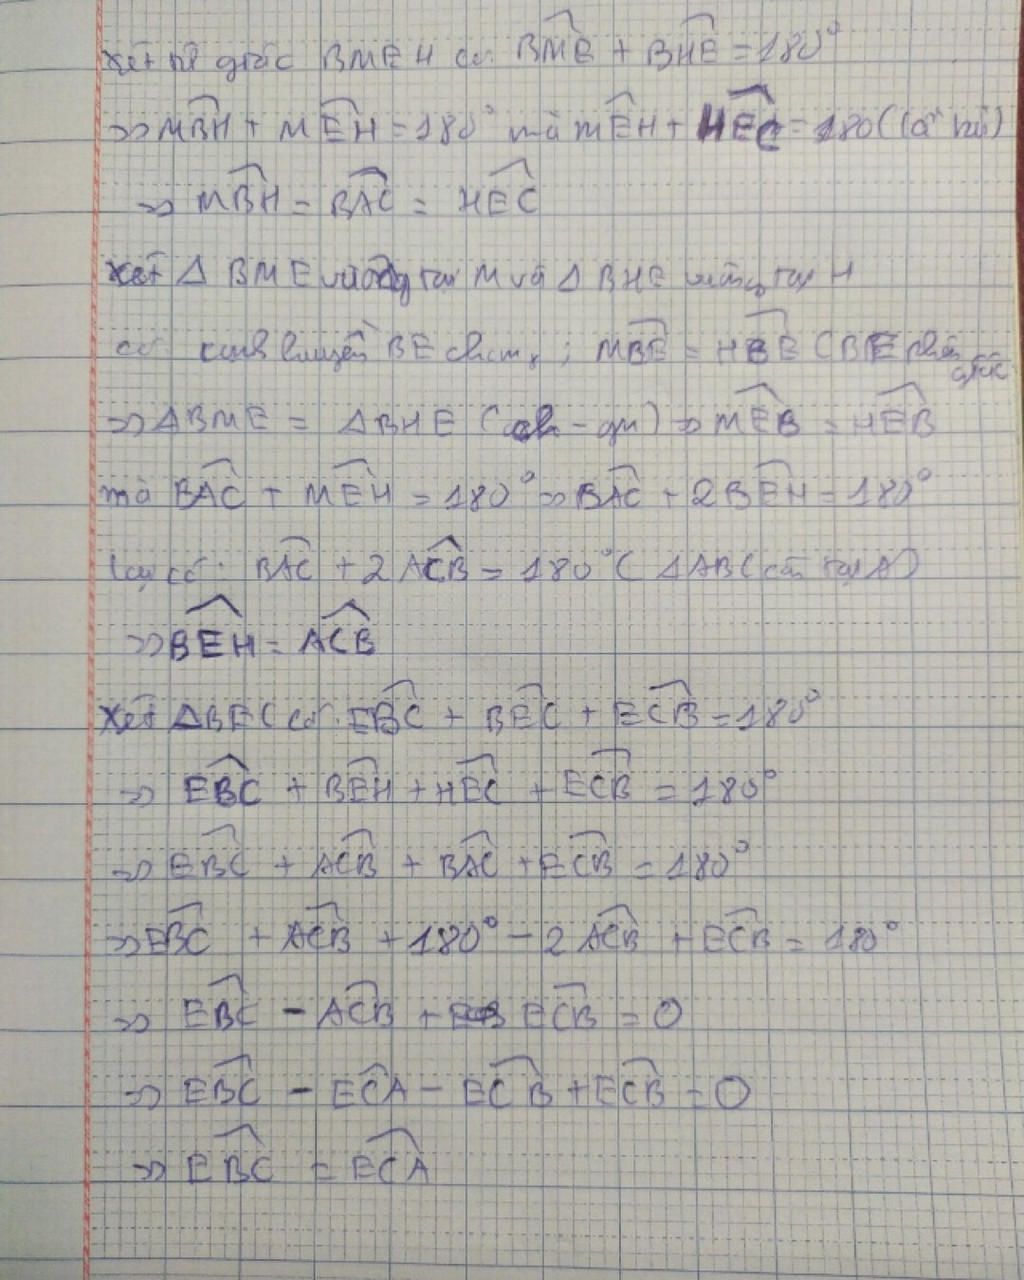 Xét tứ giác BMEH có: \widehat{BME} + \widehat{BHE} = 180°
=> \widehat{MBH} + \widehat{MEH} = 180° mà \widehat{MEH} + \widehat{HEC} = 180 (
=> \widehat{MBH} = \widehat{BAC} = \widehat{HEC}
Xét Δ BME vuông tại M và Δ BHE vuông tại H
có cạnh huyền BE chung; \widehat{MBE} = \widehat{HBE} (BE phân giác
=> ΔBME = ΔBHE (ch - gn) => \widehat{MEB} = \widehat{HEB}
mà \widehat{BAC} + \widehat{MEH} = 180° => \widehat{BAC} + 2\widehat{BEH} = 180°
lại có: \widehat{BAC} + 2\widehat{ACB} = 180° (ΔABC cân tại A)
=> \widehat{BEH} = \widehat{ACB}
Xét ΔBEC có: \widehat{EBC} + \widehat{BEC} + \widehat{ECB} = 180°
=> \widehat{EBC} + \widehat{BEH} + \widehat{HEC} + \widehat{ECB} = 180°
=> \widehat{EBC} + \widehat{ACB} + \widehat{BAC} + \widehat{ECB} = 180°
=> \widehat{EBC} + \widehat{ACB} + 180° - 2\widehat{ACB} + \widehat{ECB} = 180°
=> \widehat{EBC} - \widehat{ACB} + \widehat{ECB} = 0
=> \widehat{EBC} - \widehat{ECA} - \widehat{ECB} + \widehat{ECB} = 0
=> \widehat{EBC} = \widehat{ECA}